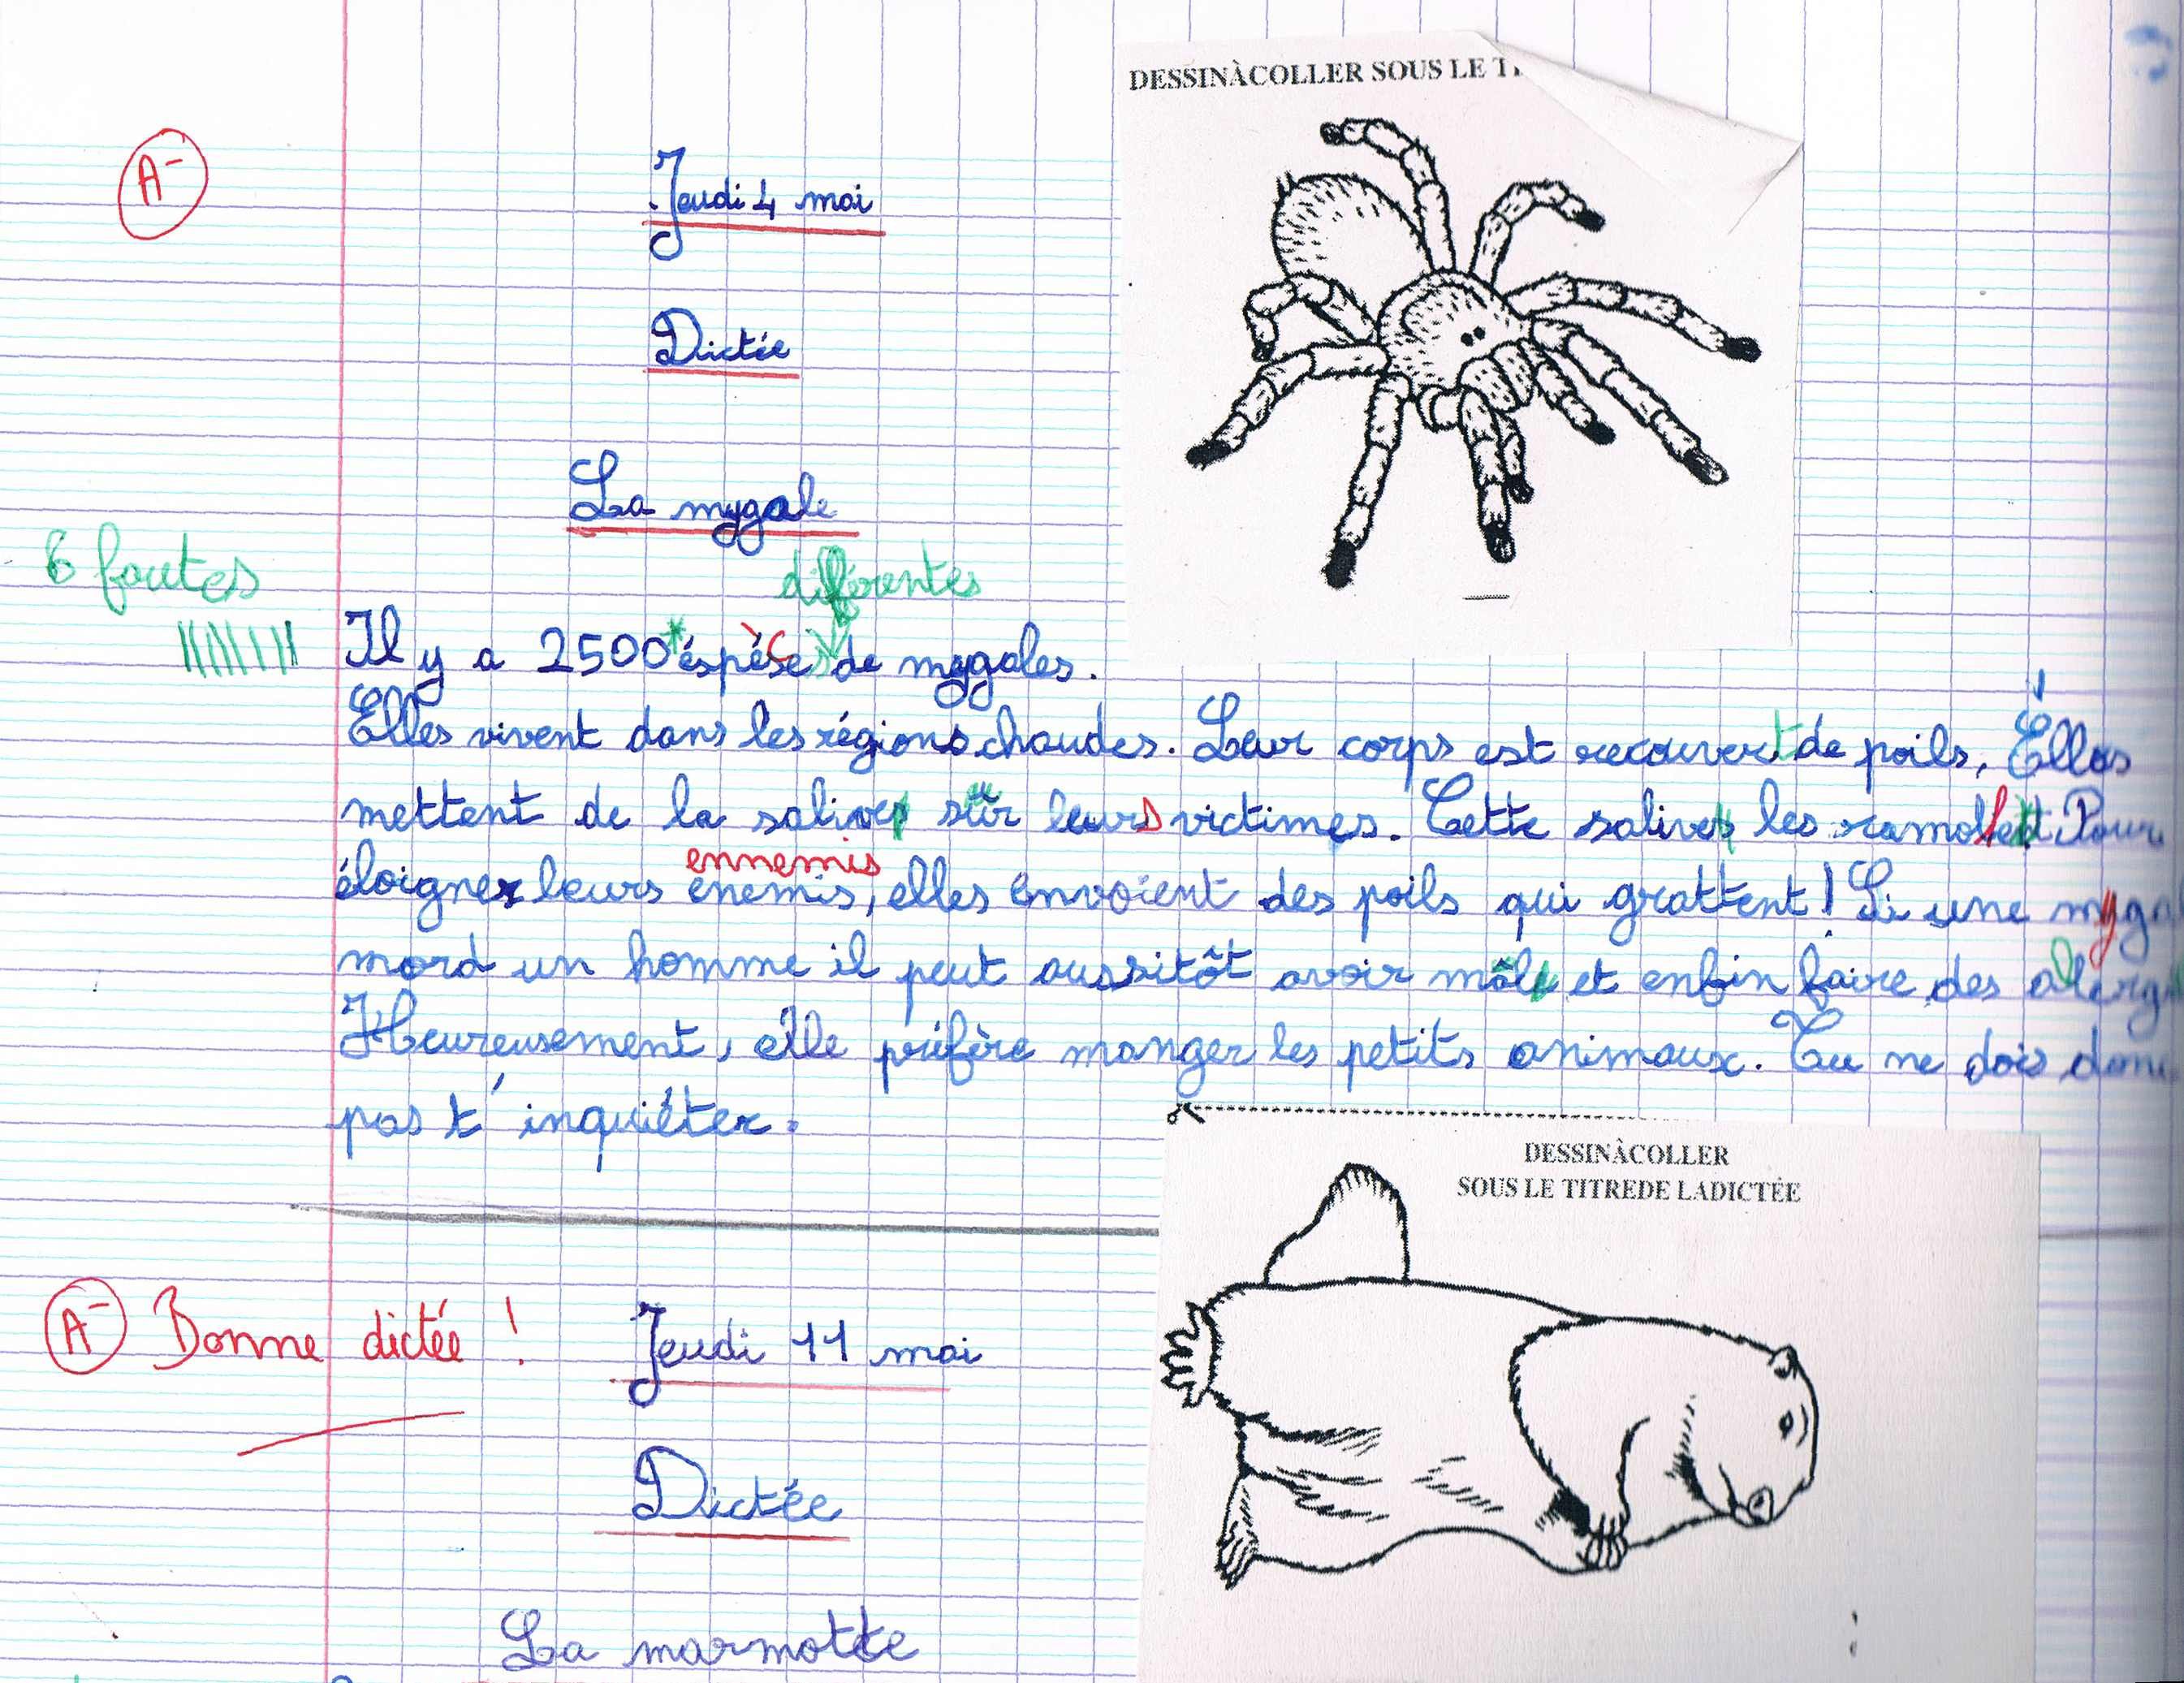 DESSIN À COLLER SOUS LE
A-
Jeudi 4 mai
Dictée
La mygale
6 fautes
différentes
Il y a 2500 * éspéces de mygales.
Elles vivent dans les régions chaudes. Leur corps est recouvert de poils, Elles
mettent de la salive sur leurs victimes. Cette salive les Pour
ennemis
éloigner leurs enemis, elles envoient des poils qui grattent! Si une
mord un homme il peut aussitôt avoir et enfin faire des
Heureusement, elle préfère manger les petits animaux. Tu ne dois donc
pas t'inquiéter.
DESSIN À COLLER
SOUS LE TITRE DE LA DICTÉE
A- Bonne dictée !
Jeudi 11 mai
Dictée
La marmotte